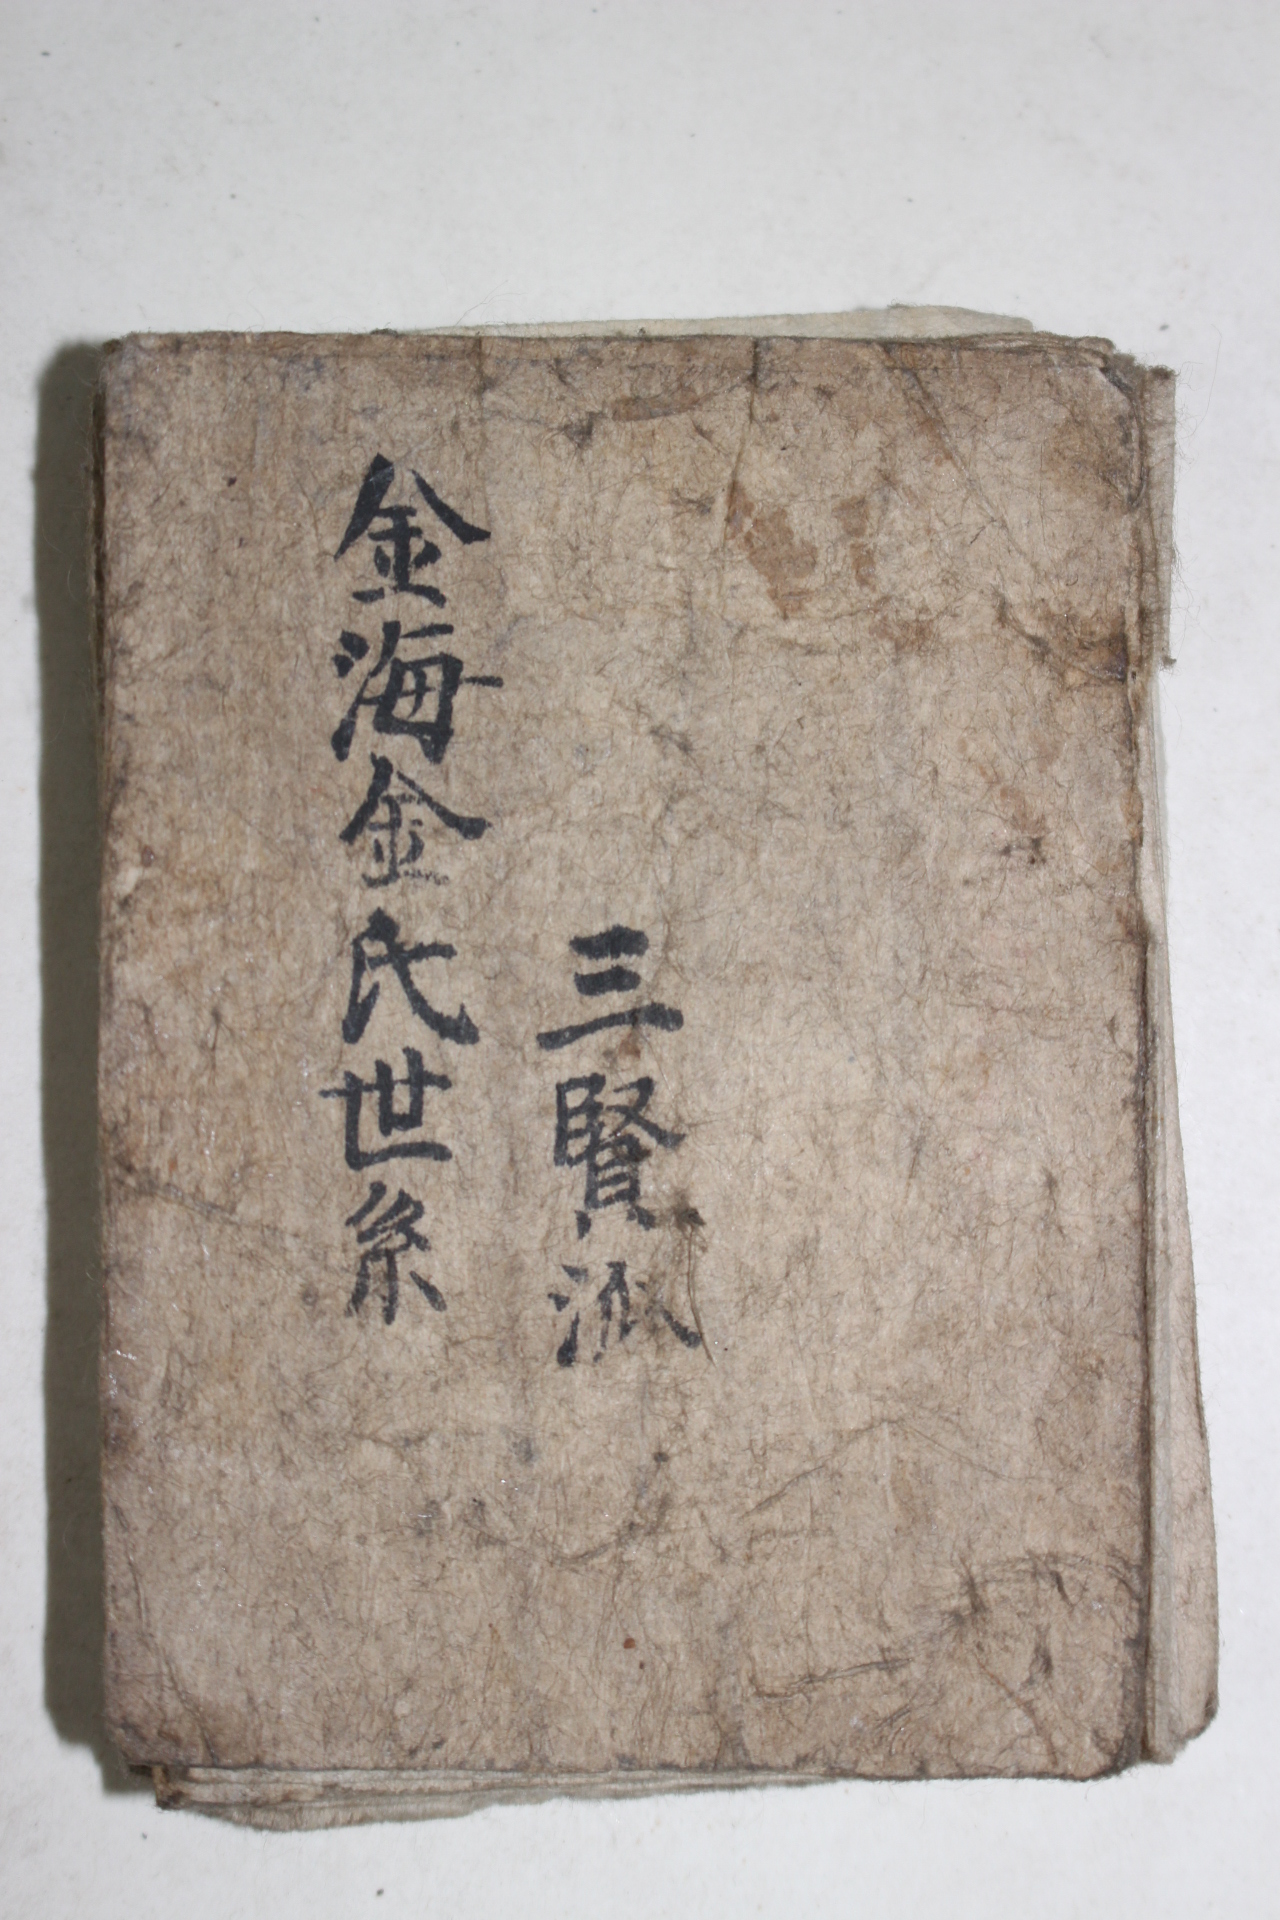 三賢派
金海金氏世系